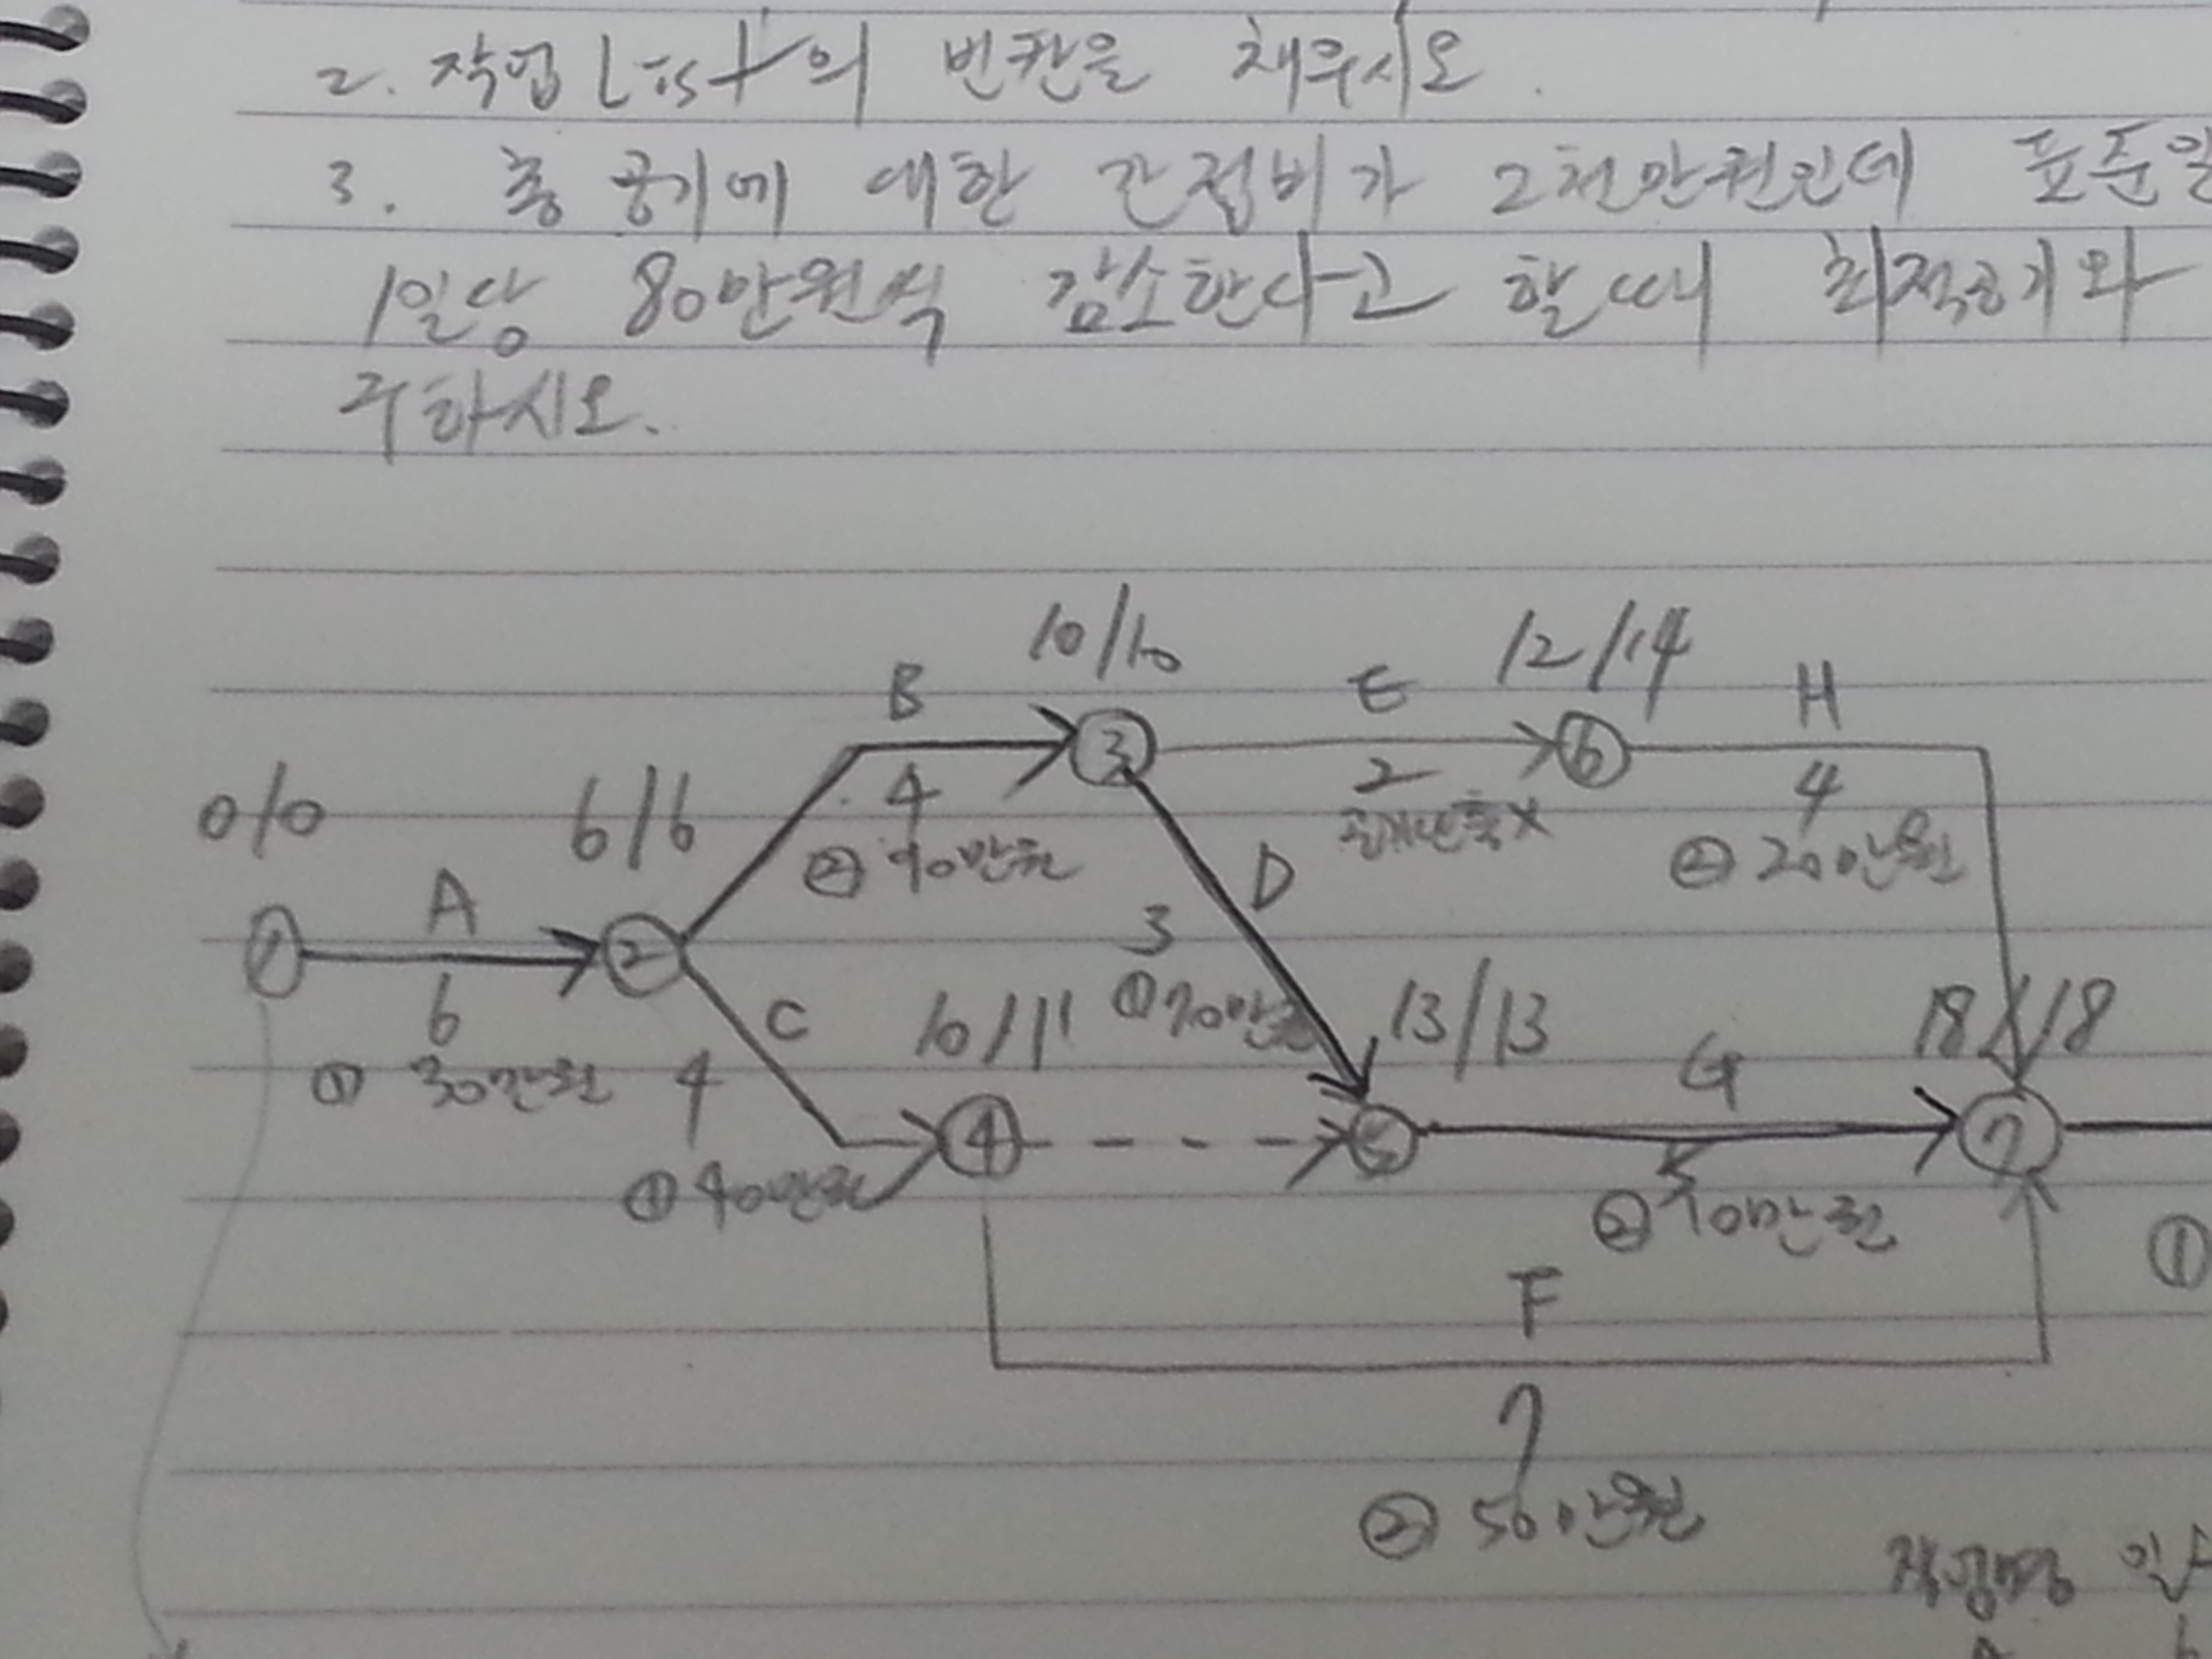 2. 작업 List의 빈칸을 채우시오.
3. 총 공기에 대한 간접비가 2천만원인데 표준일
1일당 80만원씩 감소한다고 할때 최적공기와
구하시오.
10/10
12/14
B
E
H
③
⑥
4
2
4
0/0
6/6
② 90만원
공기단축X
② 20만원
A
D
①
②
3
6
C
10/11
① 70만원
13/13
18/18
① 30만원
4
G
④
⑤
⑦
5
① 40만원
② 90만원
①
F
7
② 50만원
작업명